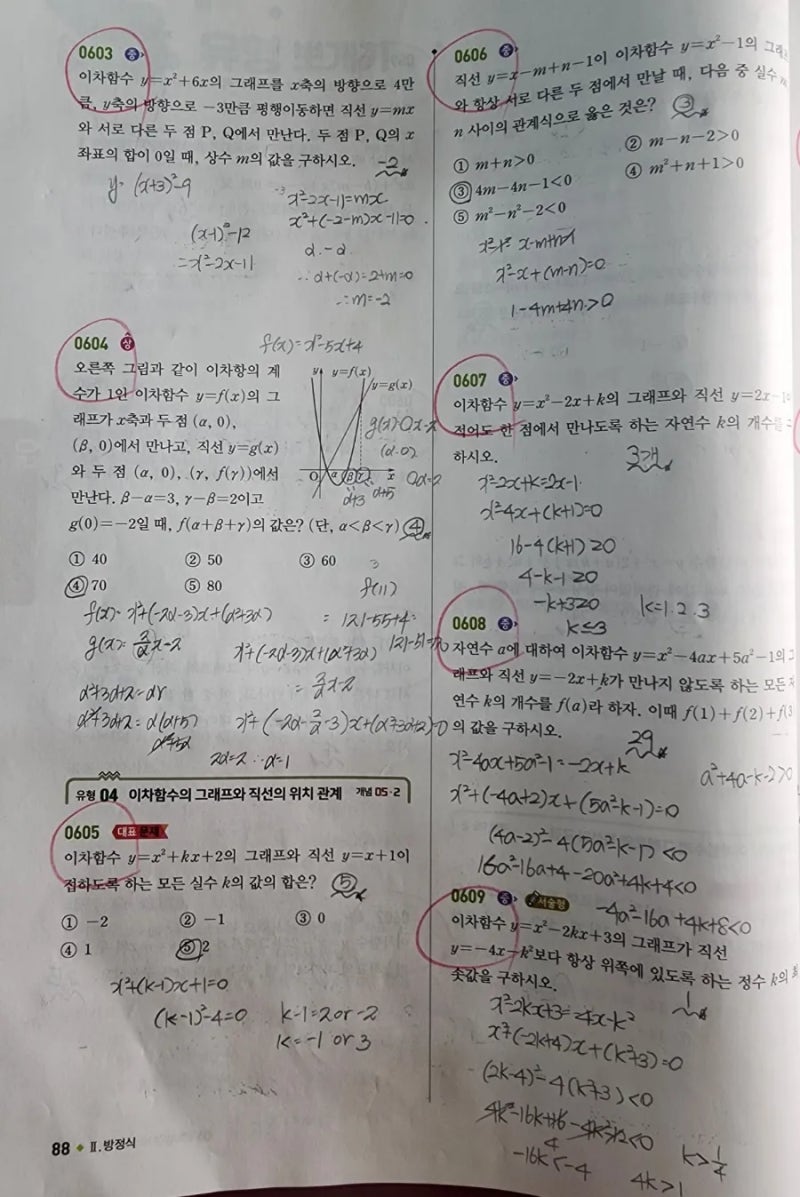 0603 중
이차함수 y=x²+6x의 그래프를 x축의 방향으로 4만
큼, y축의 방향으로 -3만큼 평행이동하면 직선 y=mx
와 서로 다른 두 점 P, Q에서 만난다. 두 점 P, Q의 x
좌표의 합이 0일 때, 상수 m의 값을 구하시오. -2
y=(x+3)²-9
x²-2x-11=mx
x²+(-2-m)x-11=0
(x-1)²-12
=x²-2x-11
α. -α
∴ α+(-α)=2+m=0
∴ m=-2
0604 상
f(x)=x²-5x+4
오른쪽 그림과 같이 이차항의 계
수가 1인 이차함수 y=f(x)의 그
래프가 x축과 두 점 (α, 0),
(β, 0)에서 만나고, 직선 y=g(x)
와 두 점 (α, 0), (γ, f(γ))에서
만난다. β-α=3, γ-β=2이고
g(0)=-2일 때, f(α+β+γ)의 값은? (단, α<β<γ) ④
y
y=f(x)
y=g(x)
O α β γ x
α+3 α+5
(α.0)
① 40 ② 50 ③ 60
④ 70 ⑤ 80
f(11)
f(x)=x²+(-2α-3)x+(α²+3α)
=121-55+4
g(x)=2/α x-2
x²+(-2α-3)x+(α²+3α)
=2/α x-2
α²+3α+2=αγ
α²+3α+2=α(α+5)
α²+5α
x²+(-2α-2/α-3)x+(α²+3α+2)=0
2α=2 ∴α=1
유형 04 이차함수의 그래프와 직선의 위치 관계 개념 05-2
0605 대표 문제
이차함수 y=x²+kx+2의 그래프와 직선 y=x+1이
접하도록 하는 모든 실수 k의 값의 합은? ⑤
① -2 ② -1 ③ 0
④ 1 ⑤ 2
x²+(k-1)x+1=0
(k-1)²-4=0
k-1=2 or -2
k=-1 or 3
88 Ⅱ. 방정식
0606 중
직선 y=x-m+n-1이 이차함수 y=x²-1의 그래
와 항상 서로 다른 두 점에서 만날 때, 다음 중 실수 m
n 사이의 관계식으로 옳은 것은? ③
① m+n>0 ② m-n-2>0
③ 4m-4n-1<0 ④ m²+n+1>0
⑤ m²-n²-2<0
x²-x+(m-n)=0
1-4m+4n>0
0607 중
이차함수 y=x²-2x+k의 그래프와 직선 y=2x-1
적어도 한 점에서 만나도록 하는 자연수 k의 개수를
하시오.
3개
x²-2x+k=2x-1
x²-4x+(k+1)=0
16-4(k+1)≥0
4-k-1≥0
-k+3≥0
k≤3
k=1.2.3
0608 중
자연수 a에 대하여 이차함수 y=x²-4ax+5a²-1의
래프와 직선 y=-2x+k가 만나지 않도록 하는 모든
연수 k의 개수를 f(a)라 하자. 이때 f(1)+f(2)+f(3
의 값을 구하시오.
29
x²-4ax+5a²-1=-2x+k
a²+4a-k-2>0
x²+(-4a+2)x+(5a²-k-1)=0
(4a-2)²-4(5a²-k-1)<0
16a²-16a+4-20a²+4k+4<0
-4a²-16a+4k+8<0
0609 중 서술형
이차함수 y=x²-2kx+3의 그래프가 직선
y=-4x-k²보다 항상 위쪽에 있도록 하는 정수 k의
솟값을 구하시오.
1
x²-2kx+3=-4x-k²
x²+(-2k+4)x+(k²+3)=0
(2k-4)²-4(k²+3)<0
4k²-16k+16-4k²-12<0
-16k<-4
4k>1
k>1/4